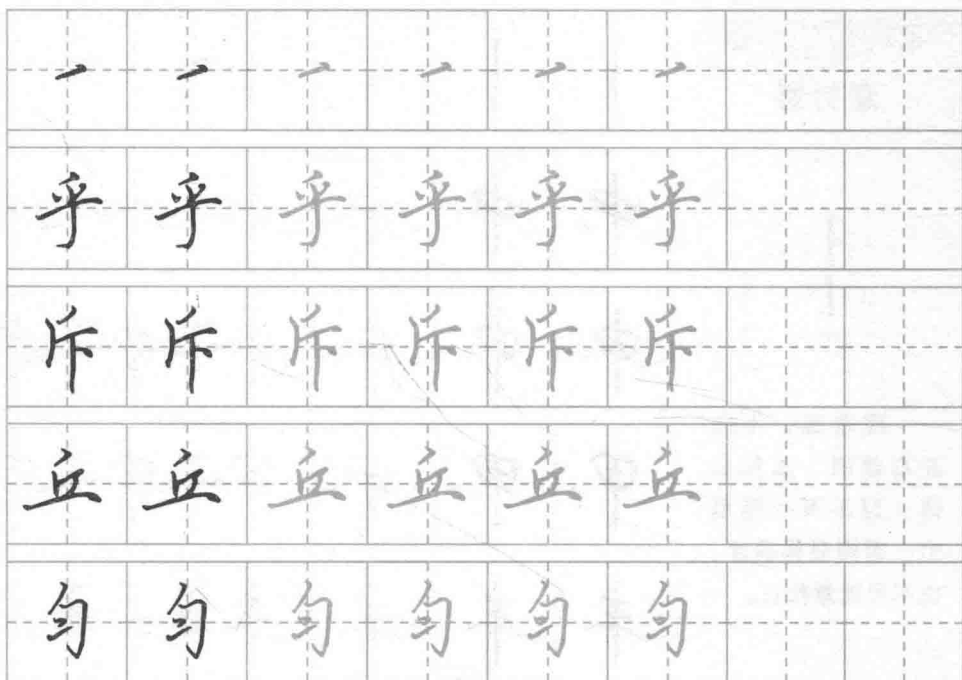 一 一 一 一 一 一
乎 乎 乎 乎 乎 乎
斥 斥 斥 斥 斥 斥
丘 丘 丘 丘 丘 丘
匀 匀 匀 匀 匀 匀